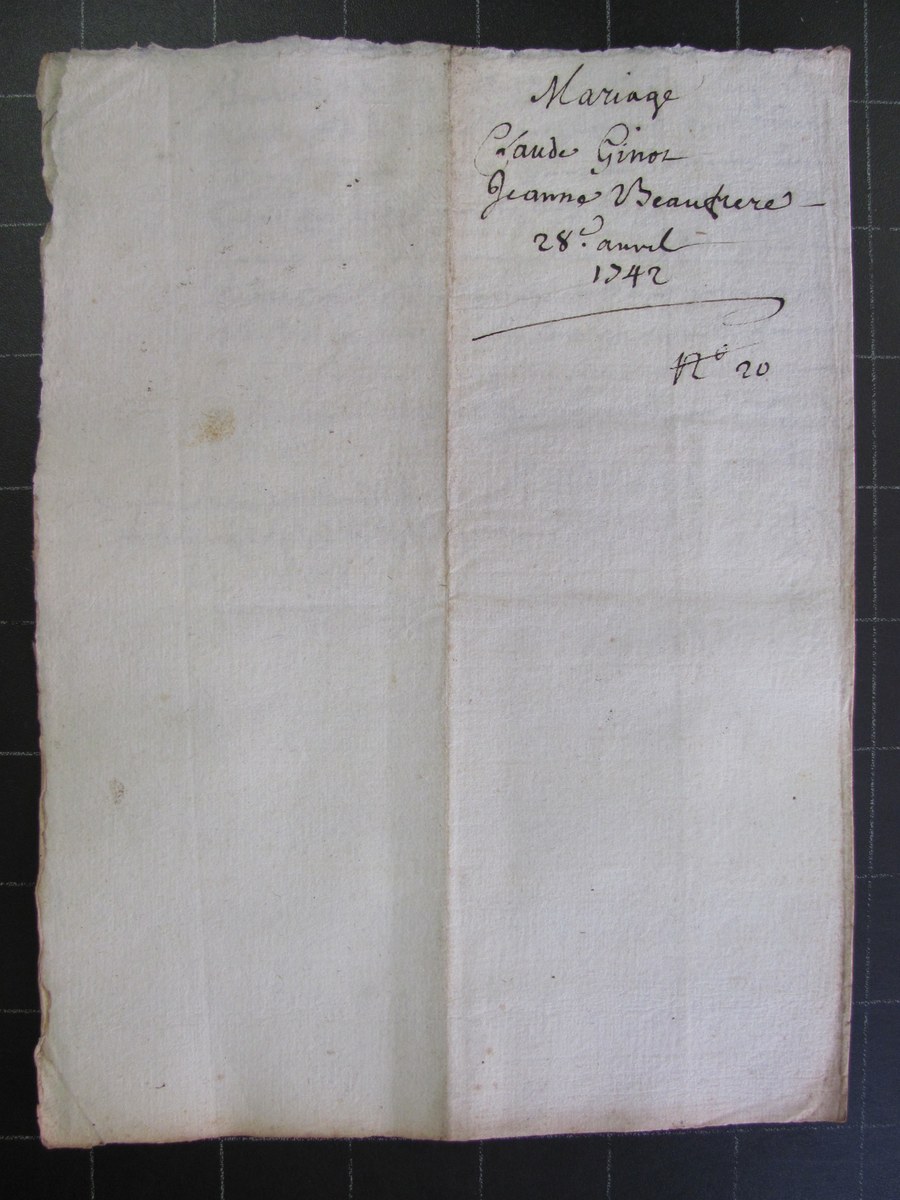 Mariage
Claude Ginot
Jeanne Beaufrere
28e. avril
1742
No 20